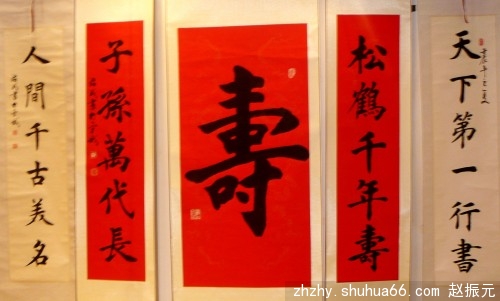 天下第一行書
松鶴千年壽
壽
子孫萬代長
人間千古美名
zhzhy.shuhua66.com 赵振元